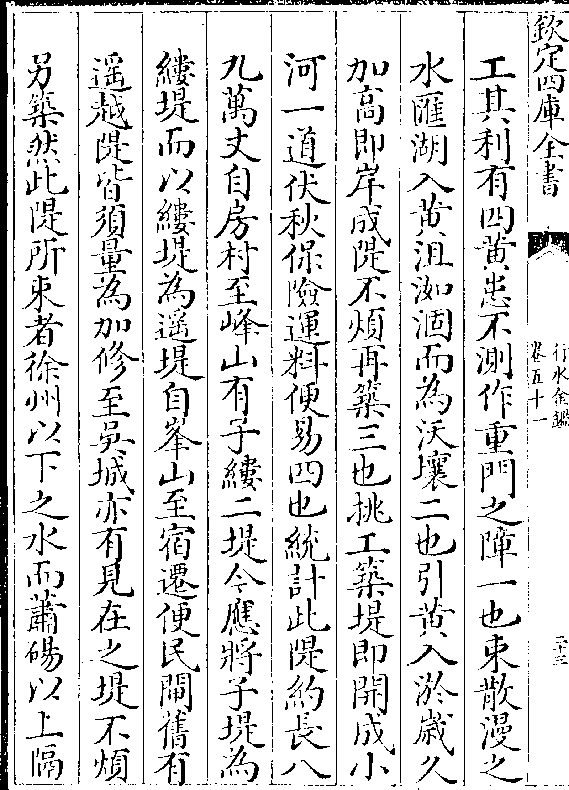 欽定四庫全書
行水金鑑
卷五十一
二十三
工其利有四黃患不測作重門之障一也束散漫之
水匯湖入黃沮洳涸而為沃壤二也引黃入淤歲久
加高即岸成隄不煩再築三也挑工築堤即開成小
河一道伏秋保險運料便易四也統計此隄約長八
九萬丈自房村至峰山有子縷二堤今應將子堤為
縷堤而以縷堤為遥堤自峯山至宿遷便民閘舊有
遥越隄皆須量為加修至吳城亦有見在之堤不煩
另築然此隄所束者徐州以下之水而蕭碭以上隔